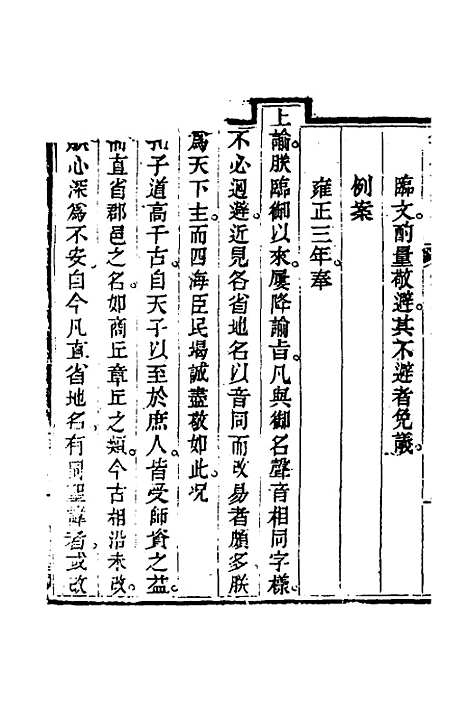 臨文酌量敬避其不避者免議。
例案
雍正三年奉
上諭朕臨御以來屢降諭旨凡與御名聲音相同字樣。
不必迴避近見各省地名以音同而改易者頗多朕
為天下主而四海臣民竭誠盡敬如此。况
孔子道高千古自天子以至於庶人。皆受師資之益。
而直省郡邑之名。如商丘章丘之類。今古相沿未改。
朕心深為不安自今凡直省地名有同聖諱者或改